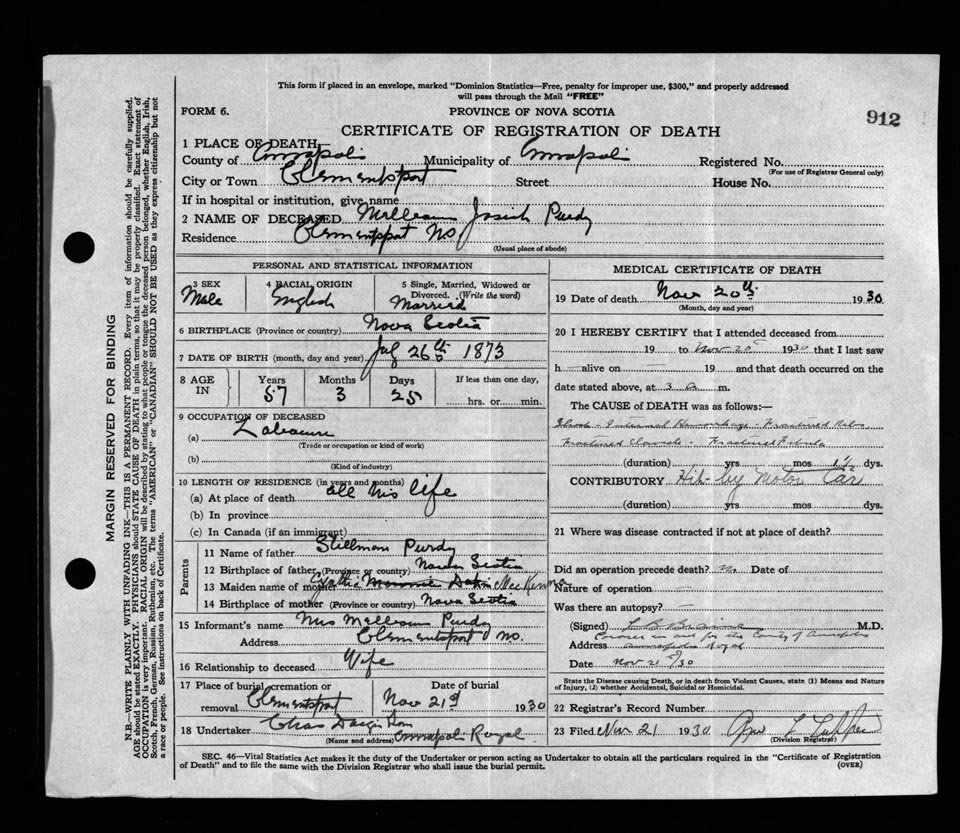 This form if placed in an envelope, marked "Dominion Statistics—Free, penalty for improper use, $300," and properly addressed
will pass through the Mail "FREE"
FORM 6. PROVINCE OF NOVA SCOTIA
912
CERTIFICATE OF REGISTRATION OF DEATH
1 PLACE OF DEATH
County of Annapolis Municipality of Annapolis Registered No.
(For use of Registrar General only)
City or Town Clementsport Street House No.
If in hospital or institution, give name
2 NAME OF DECEASED Josiah Purdy
Residence Clementsport NS
(Usual place of abode)
PERSONAL AND STATISTICAL INFORMATION
3 SEX 4 RACIAL ORIGIN 5 Single, Married, Widowed or
Divorced. (Write the word)
Male English Married
6 BIRTHPLACE (Province or country) Nova Scotia
7 DATE OF BIRTH (month, day and year) July 26th 1873
8 AGE IN Years Months Days If less than one day,
57 3 25 hrs. or min.
9 OCCUPATION OF DECEASED
(a) Labourer
(Trade or occupation or kind of work)
(b)
(Kind of industry)
10 LENGTH OF RESIDENCE (in years and months)
(a) At place of death all his life
(b) In province
(c) In Canada (if an immigrant)
Parents
11 Name of father Stillman Purdy
12 Birthplace of father (Province or country) Nova Scotia
13 Maiden name of mother
14 Birthplace of mother (Province or country) Nova Scotia
15 Informant's name Mrs Purdy
Address Clementsport NS.
16 Relationship to deceased Wife
17 Place of burial, cremation or Date of burial
removal Clementsport Nov 21st 1930
18 Undertaker Chas
(Name and address) Annapolis Royal
MEDICAL CERTIFICATE OF DEATH
19 Date of death Nov 20th 1930
(Month, day and year)
20 I HEREBY CERTIFY that I attended deceased from
19 to Nov 20 1930 that I last saw
h — alive on — 19 and that death occurred on the
date stated above, at 3 a m.
The CAUSE of DEATH was as follows:—
Shock - Internal Hemorrhage - Fractured Ribs
Fractured Clavicle - Fractured Fibula
(duration) yrs. mos. dys.
CONTRIBUTORY Hit by Motor Car
(duration) yrs. mos. dys.
21 Where was disease contracted if not at place of death?
Did an operation precede death? No Date of
Nature of operation
Was there an autopsy? —
(Signed) M.D.
Coroner in and for the County of Annapolis
Address Annapolis Royal
Date Nov 21/30
State the Disease causing Death, or in death from Violent Causes, state (1) Means and Nature
of Injury, (2) whether Accidental, Suicidal or Homicidal.
22 Registrar's Record Number
23 Filed Nov 21 1930
(Division Registrar)
SEC. 46—Vital Statistics Act makes it the duty of the Undertaker or person acting as Undertaker to obtain all the particulars required in the "Certificate of Registration
of Death" and to file the same with the Division Registrar who shall issue the burial permit. (OVER)
MARGIN RESERVED FOR BINDING
N.B.—WRITE PLAINLY WITH UNFADING INK—THIS IS A PERMANENT RECORD. Every item of information should be carefully supplied.
AGE should be stated EXACTLY. PHYSICIANS should STATE CAUSE OF DEATH in plain terms, so that it may be properly classified. Exact statement of
OCCUPATION is very important. RACIAL ORIGIN will be described by stating to what people or tongue the deceased person belonged, whether English, Irish,
Scotch, French, German, Russian, Ruthenian, etc. The terms "AMERICAN" or "CANADIAN" SHOULD NOT BE USED as they express citizenship but not
a race or people. See instructions on back of Certificate.